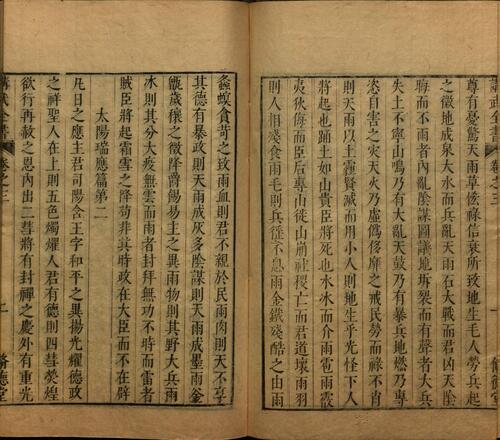 尊有憂驚天雨草倐祿信衰所致地生毛人勞兵起
之徵地成泉大水而兵亂天雨石大戰而君凶天陰
晦而不雨者內亂陰謀圖議地坼裂而有聲者大兵
失土不寧山鳴乃有大亂天鼓乃有暴兵地燃乃專
恣自害之灾天火乃虛僞侈靡之戒民勞而祿不肖
則天雨以土霾賢滅而用小人則地生乎光怪下人
將起也踊土如山貴臣將死也水冰而介雨雹雨霰
夷狄侮而臣后專山徙山崩社稷亡而君道壞雨羽
則人相殘食雨毛則兵徃不息雨金鐵殘酷之由雨
螽螟食苛之致雨血則君不親於民雨肉則天不享
其德有暴政則天雨成灰多陰謀則天雨成墨雨金
甑歲穰之徵降爵錫易主之異雨物則其野大兵雨
冰則其分大疫無雲而雨者封拜無功不時而雷者
賊臣將起霜雪之降苟非其時政在大臣而不在辟
太陽瑞應篇第二
凡日之應主君司陽含王字和平之異揚光耀德政
之祥聖人在上則五色燭耀人君有德則四彗熒煌
欲行再赦之恩內出二彗將有封禪之慶外有重光
講武全書
卷之三
脩德堂